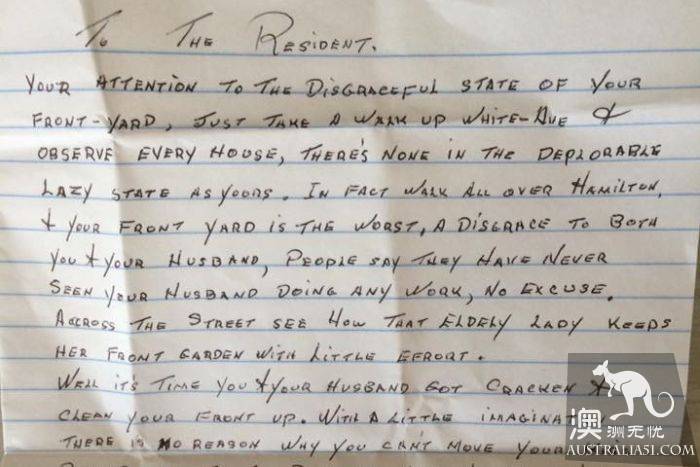 To The Resident.
Your attention to the disgraceful state of your
front-yard, just take a walk up White-Ave &
observe every house, there's none in the deplorable
lazy state as yours. In fact walk all over Hamilton,
& your front yard is the worst, a disgrace to both
you & your husband, people say they have never
seen your husband doing any work, no excuse.
Across the street see how that eldely lady keeps
her front garden with little effort.
Well it's time you & your husband got cracken &
clean your front up. With a little
there is no reason why you can't move
澳洲无忧
AUSTRALIA51.COM